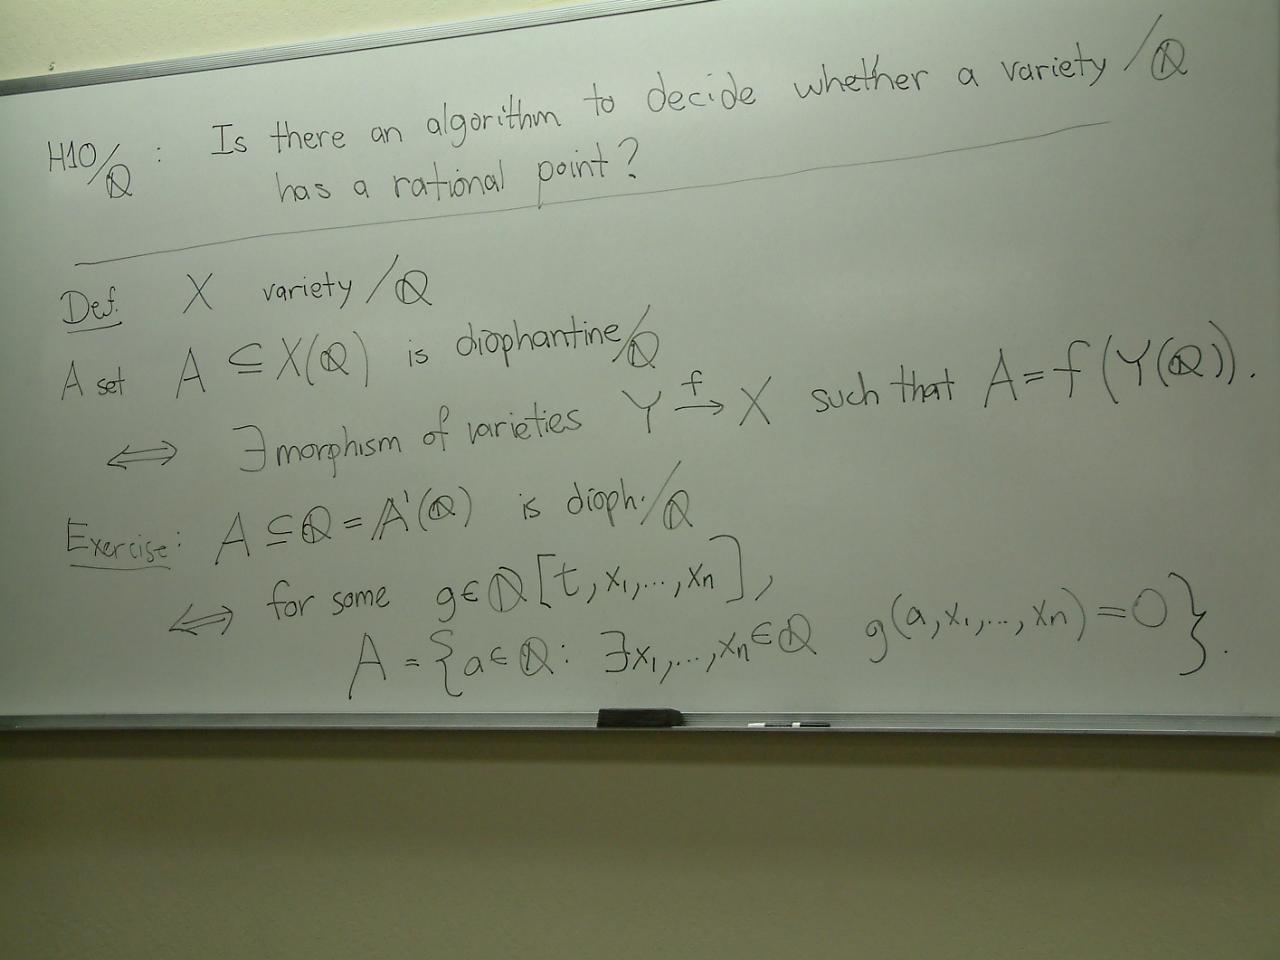 H10/ℚ : Is there an algorithm to decide whether a variety /ℚ
has a rational point?
Def. X variety /ℚ
A set A ⊆ X(ℚ) is diophantine/ℚ
⟺ ∃ morphism of varieties Y →^f X such that A = f(Y(ℚ)).
Exercise: A ⊆ ℚ = 𝔸¹(ℚ) is dioph./ℚ
⟺ for some g ∈ ℚ[t, x₁, ..., xₙ],
A = {a ∈ ℚ : ∃ x₁, ..., xₙ ∈ ℚ g(a, x₁, ..., xₙ) = 0}.